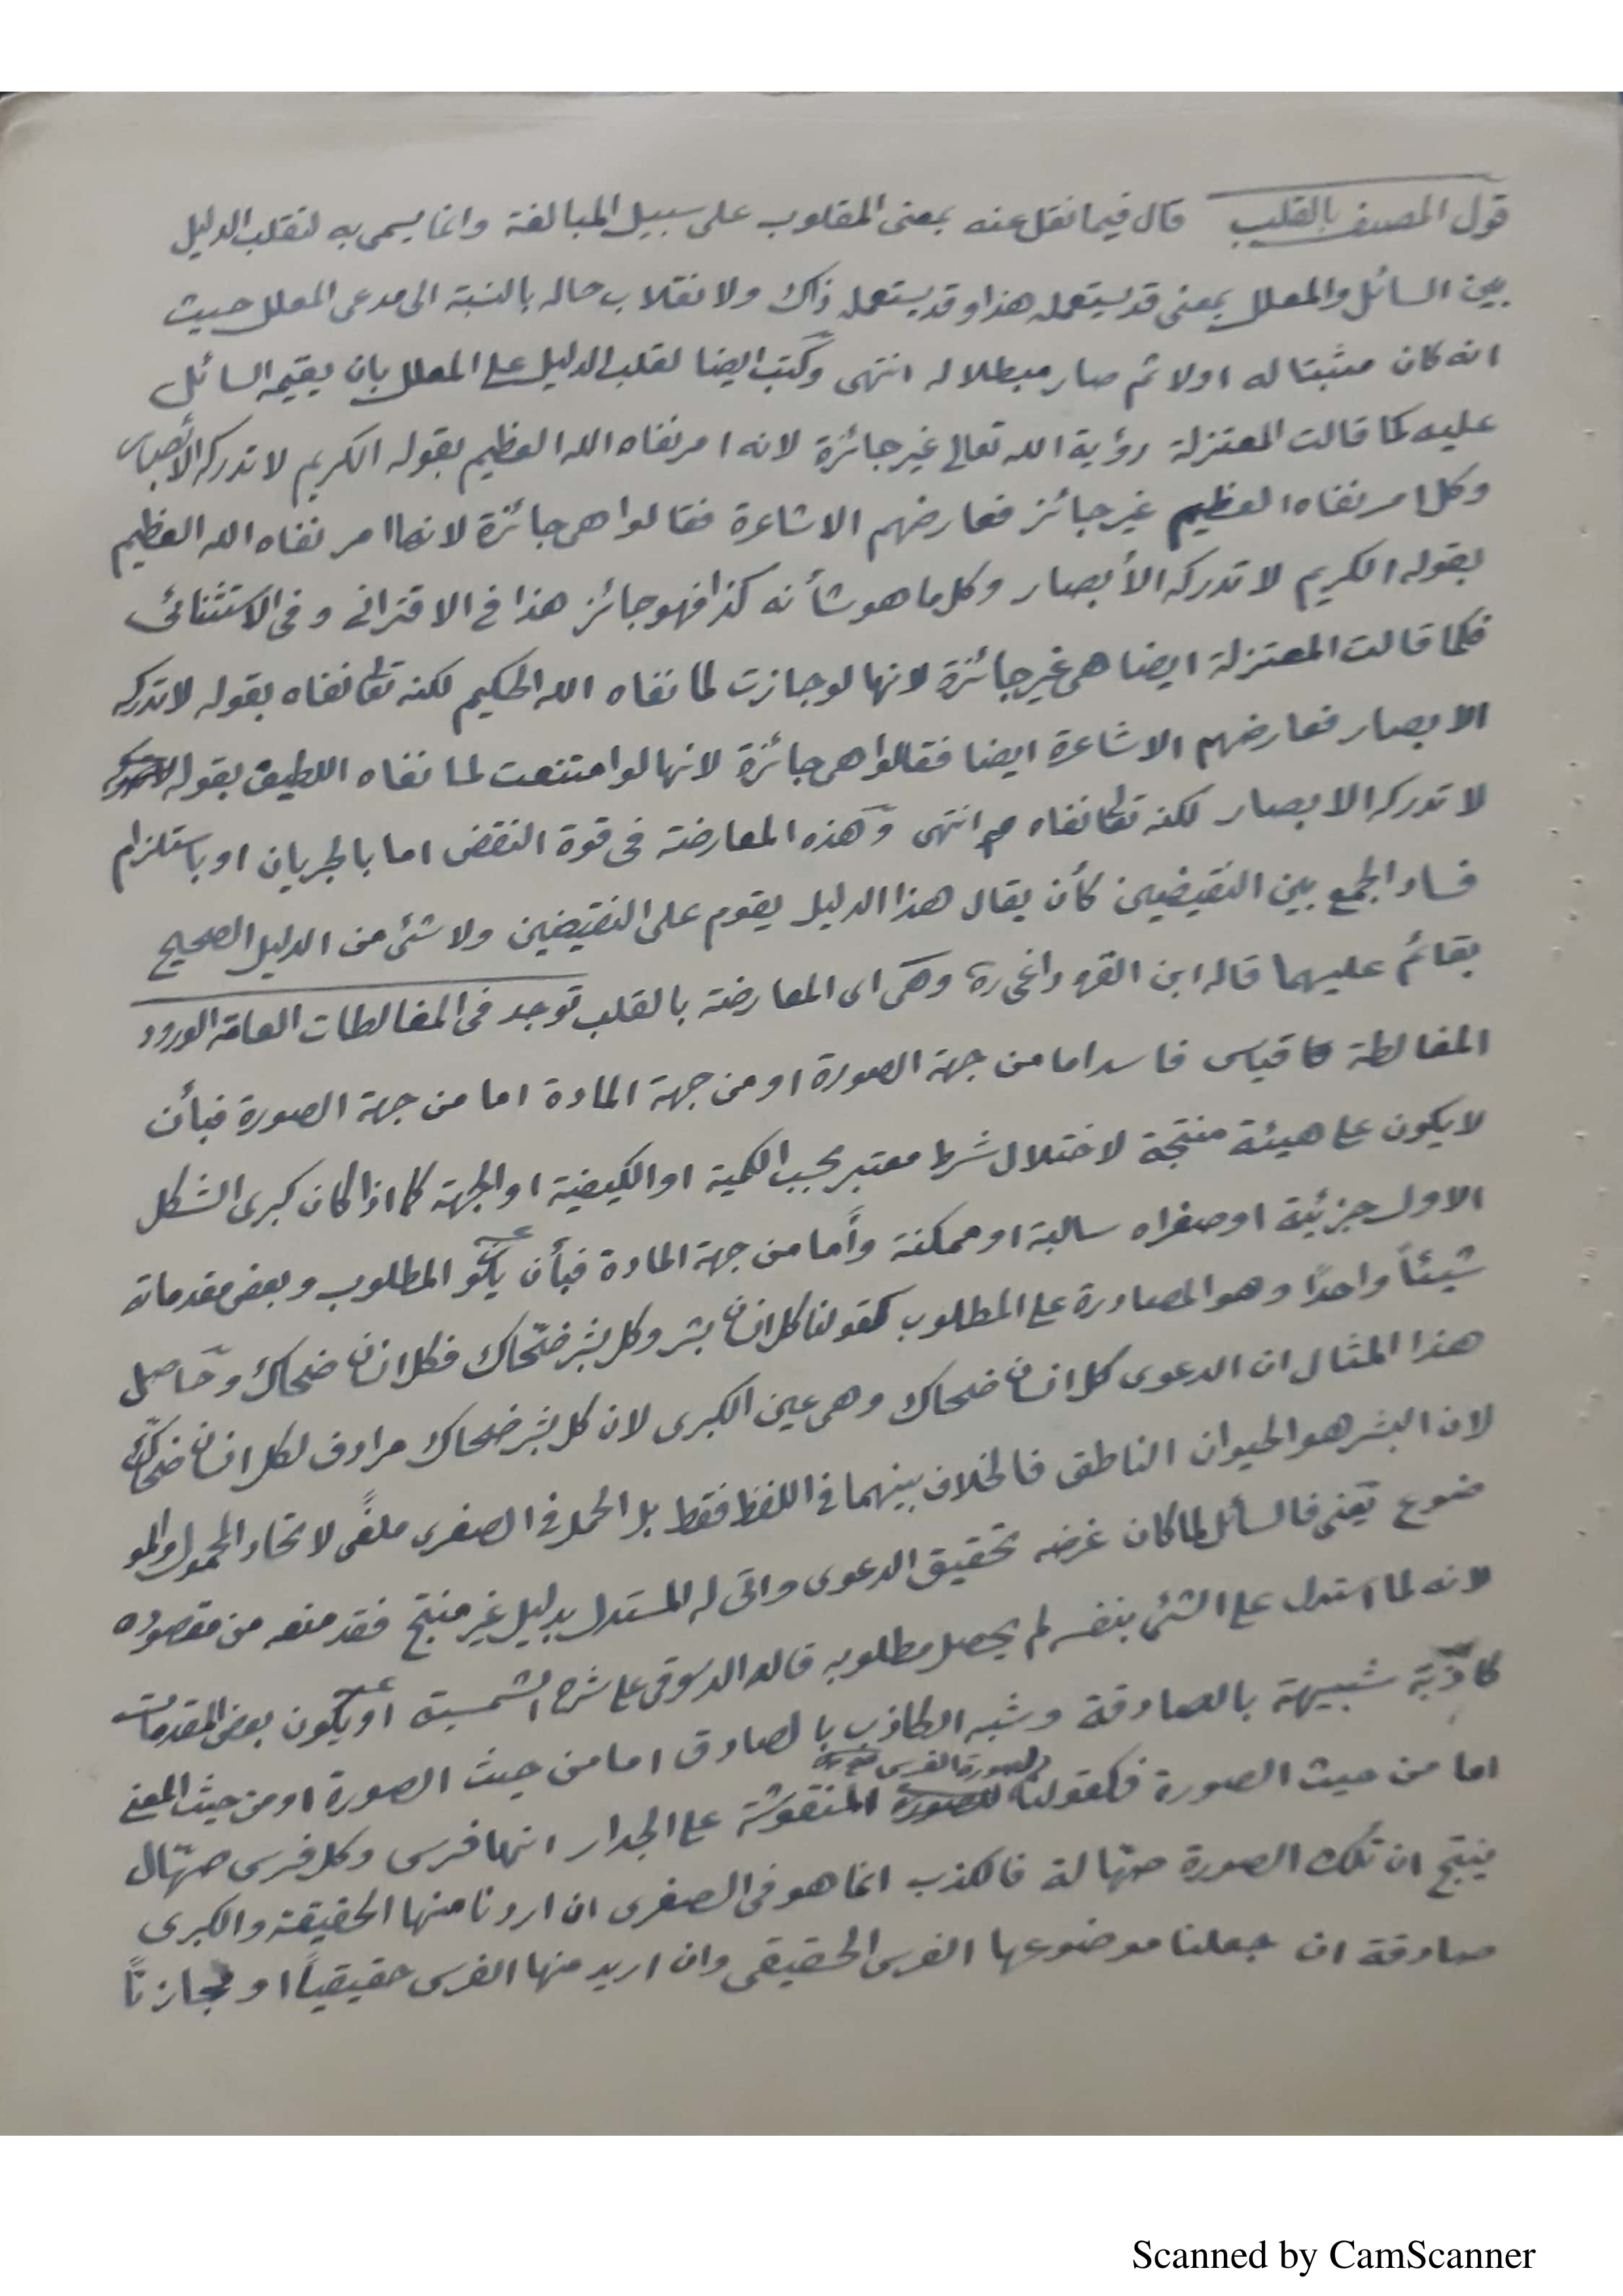 قول المصنف بالقلب قال فيما نقل عنه بمعنى المقلوب على سبيل المبالغة وانما يسمى به لتقلب الدليل
بين السائل والمعلل بمعنى قد يستعمله هذا وقد يستعمله ذاك ولانقلاب حاله بالنسبة الى مدعى المعلل حيث
انه كان مثبتا له اولا ثم صار مبطلا له انتهى وكتب ايضا لقلب الدليل على المعلل بان يقيمه السائل
عليه كما قالت المعتزلة رؤية الله تعالى غير جائزة لانه امر نفاه الله العظيم بقوله الكريم لا تدركه الأبصار
وكل امر نفاه العظيم غير جائز فعارضهم الاشاعرة فقالوا هى جائزة لانها امر نفاه الله العظيم
بقوله الكريم لا تدركه الأبصار وكل ما هو شأنه كذا فهو جائز هذا فى الاقترانى وفى الاستثنائى
فكما قالت المعتزلة ايضا هى غير جائزة لانها لو جازت لما نفاه الله الحكيم لكنه تعالى نفاه بقوله لا تدركه
الابصار فعارضهم الاشاعرة ايضا فقالوا هى جائزة لانها لو امتنعت لما نفاه اللطيف بقوله
لا تدركه الابصار لكنه تعالى نفاه انتهى وهذه المعارضة فى قوة النقض اما بالجريان او باستلزام
فساد الجمع بين النقيضين كأن يقال هذا الدليل يقوم على النقيضين ولا شئ من الدليل الصحيح
بقائم عليهما قاله ابن القره داغى ره وهى اى المعارضة بالقلب توجد فى المغالطات العامة الورود
المغالطة قياس فاسد اما من جهة الصورة او من جهة المادة اما من جهة الصورة فبأن
لا يكون على هيئة منتجة لاختلال شرط معتبر بحسب الكمية او الكيفية او الجهة كما اذا كان كبرى الشكل
الاول جزئية او صغراه سالبة او ممكنة وأما من جهة المادة فبأن يكو المطلوب وبعض مقدماته
شيئاً واحدًا وهو المصادرة على المطلوب كقولنا كل انسان بشر وكل بشر ضحّاك فكل انسان ضحاك وحاصل
هذا المثال ان الدعوى كل انسان ضحاك وهى عين الكبرى لان كل بشر ضحاك مرادف لكل انسان ضحاك
لان البشر هو الحيوان الناطق فالخلاف بينهما فى اللفظ فقط بل الحمل فى الصغرى ملغًى لاتحاد المحمول والمو
ضوع يعنى فالسائل لما كان غرضه تحقيق الدعوى واتى له المستدل بدليل غير منتج فقد منعه من مقصوده
لانه لما استدل على الشئ بنفسه لم يحصل مطلوبه قاله الدسوقى على شرح الشمسية او يكون بعض المقدمات
كاذبة شبيهة بالصادقة وشبه الكاذب بالصادق اما من حيث الصورة او من حيث المعنى
اما من حيث الصورة فكقولنا لصورة الفرس المنقوشة على الجدار انها فرس وكل فرس صهّال
ينتج ان تلك الصورة صهّالة فالكذب انما هو فى الصغرى ان اردنا منها الحقيقة والكبرى
صادقة ان جعلنا موضوعها الفرس الحقيقى وان اريد منها الفرس حقيقياً او مجازيّاً
Scanned by CamScanner